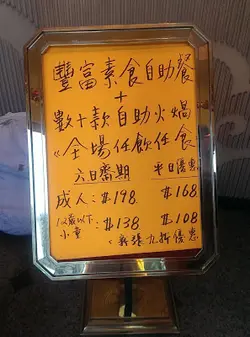 豐富素食自助餐
+
數十款自助火煱
《全場任飲任食
六日假期 平日優惠
成人：$198 $168
12歲以下小童 $138 $108
《新張九折優惠